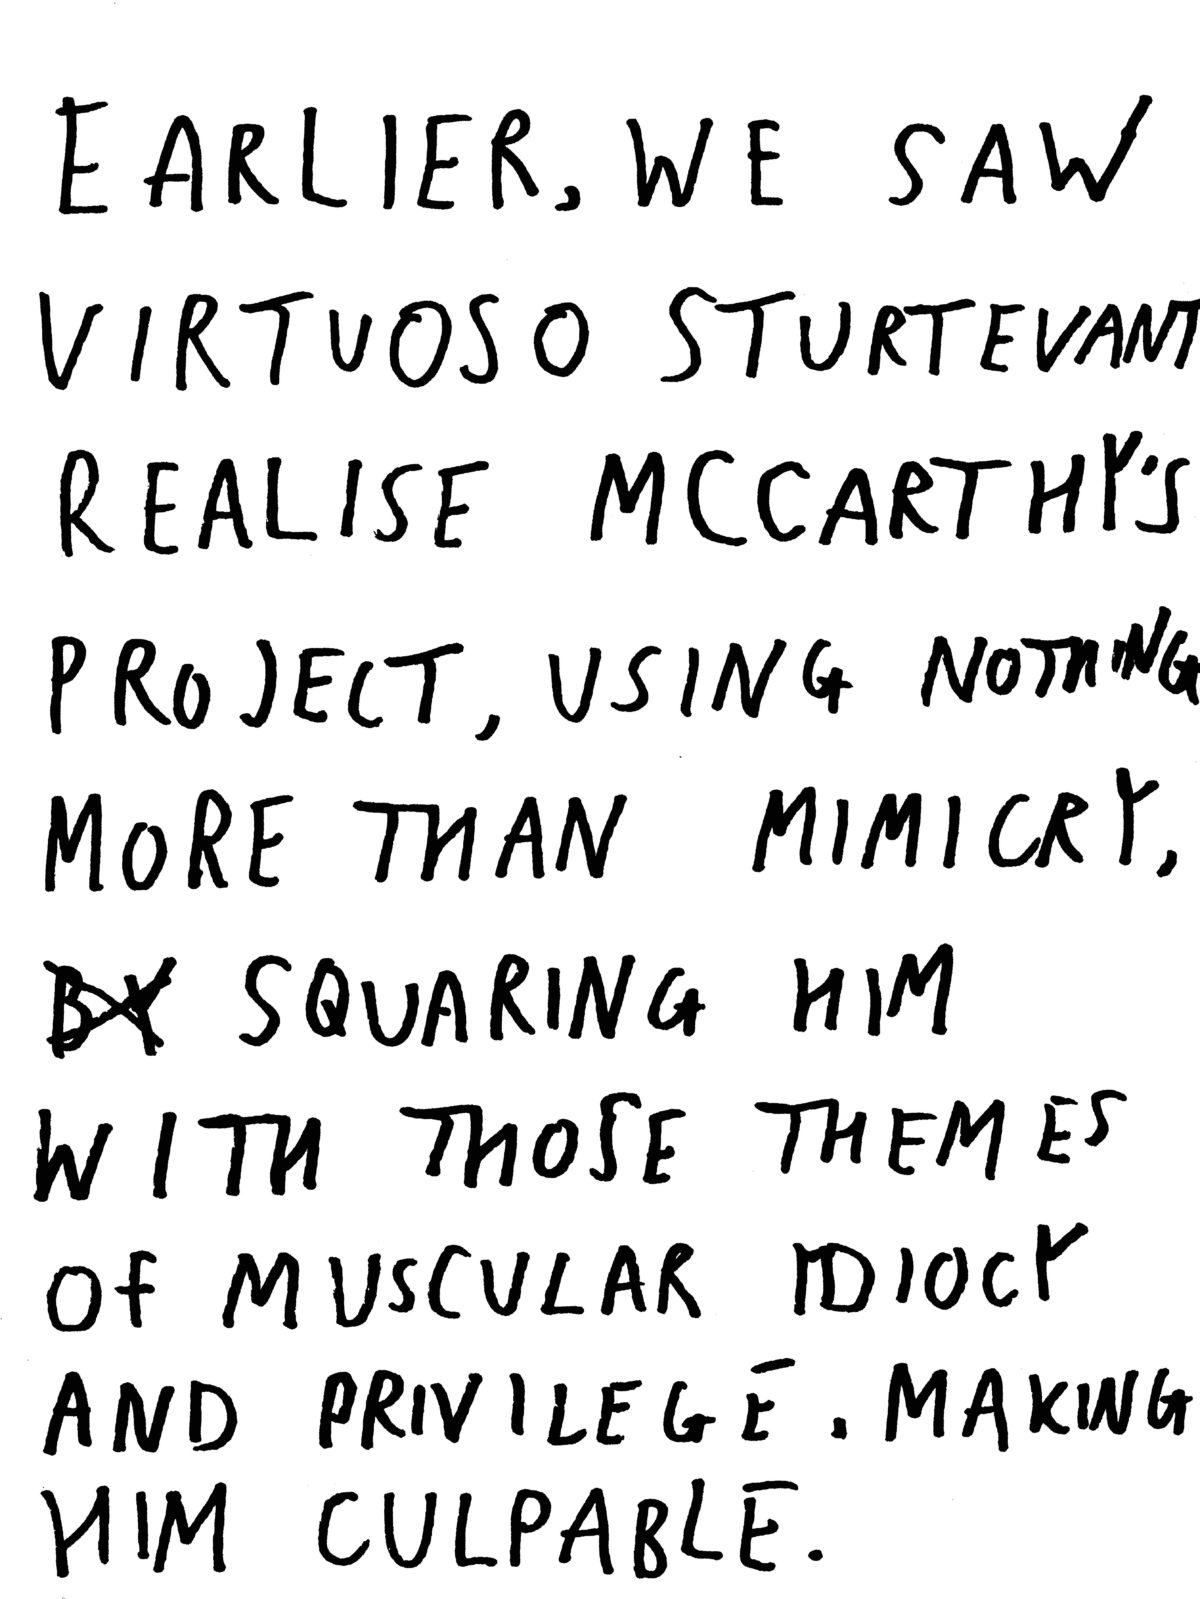 EARLIER, WE SAW
VIRTUOSO STURTEVANT
REALISE MCCARTHY'S
PROJECT, USING NOTHING
MORE THAN MIMICRY,
BY SQUARING HIM
WITH THOSE THEMES
OF MUSCULAR IDIOCY
AND PRIVILEGE. MAKING
HIM CULPABLE.